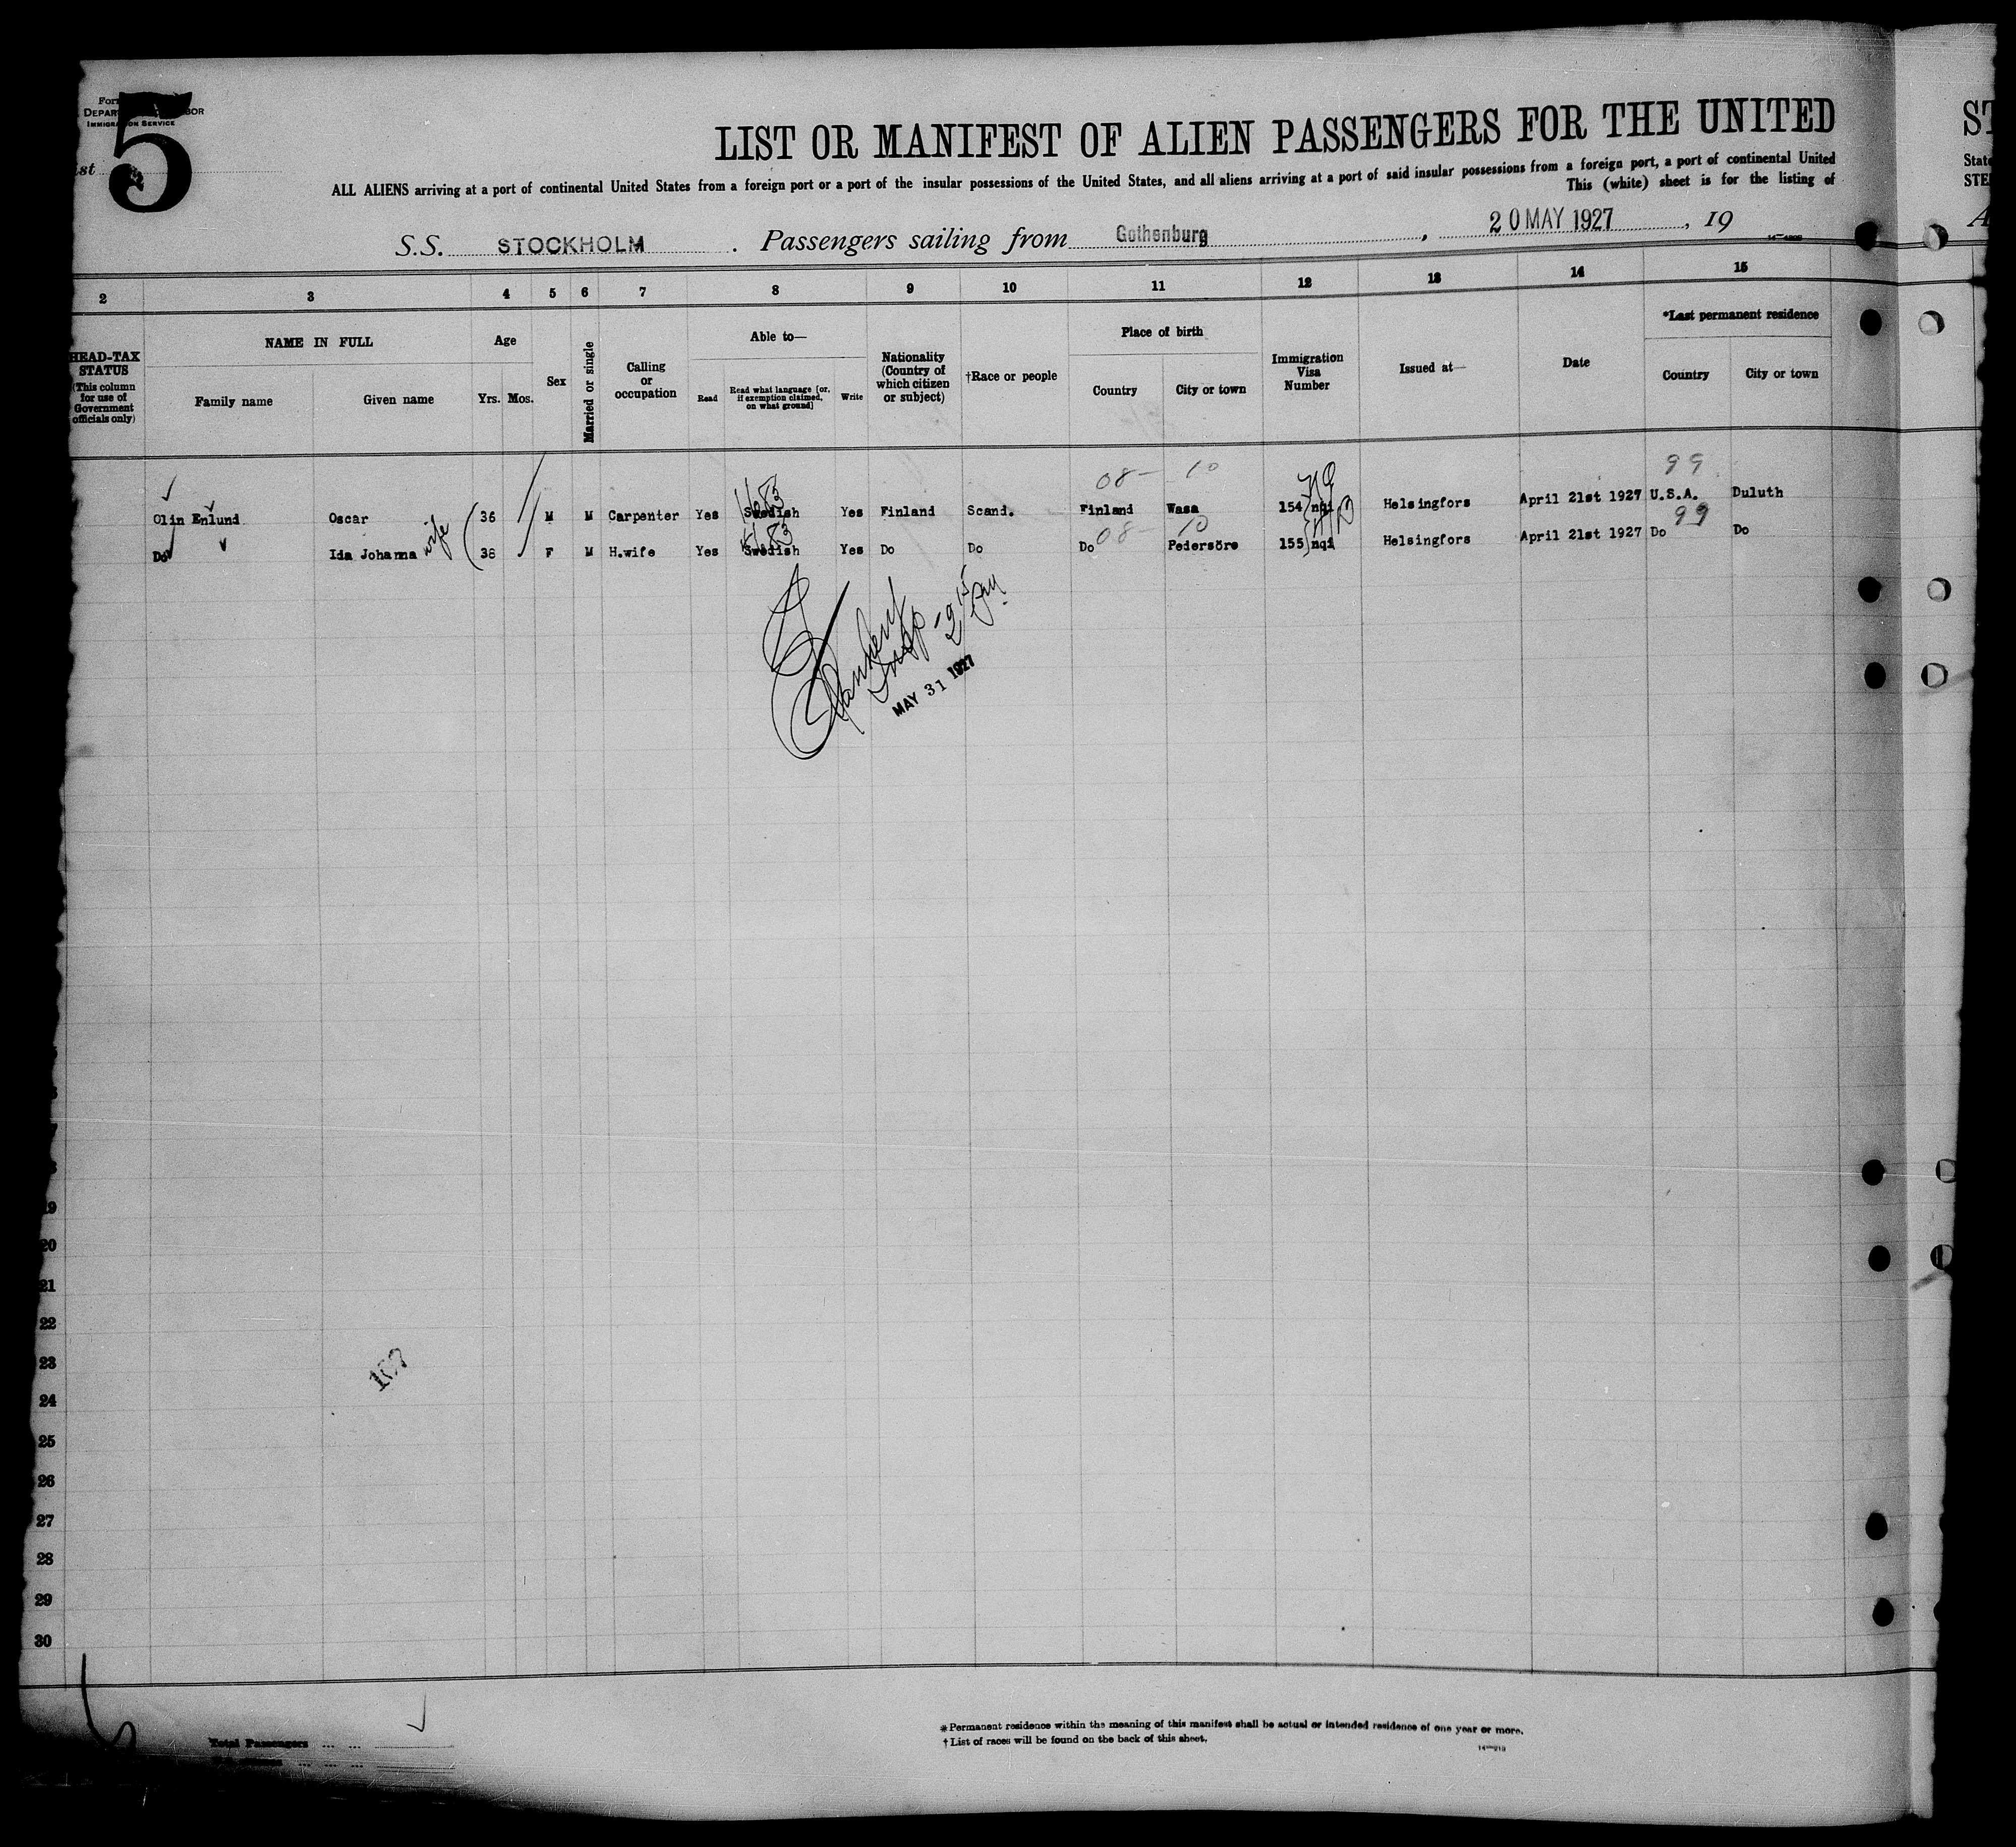 5
IMMIGRATION SERVICE
LIST OR MANIFEST OF ALIEN PASSENGERS FOR THE UNITED
ST
ALL ALIENS arriving at a port of continental United States from a foreign port or a port of the insular possessions of the United States, and all aliens arriving at a port of said insular possessions from a foreign port, a port of continental United
This (white) sheet is for the listing of
State
STE
S.S. STOCKHOLM . Passengers sailing from Gothenburg , 20 MAY 1927 , 19
2 3 4 5 6 7 8 9 10 11 12 13 14 15
HEAD-TAX STATUS
(This column for use of Government officials only)
NAME IN FULL
Family name
Given name
Age
Yrs. Mos.
Sex
Married or single
Calling or occupation
Able to—
Read
Read what language [or, if exemption claimed, on what ground]
Write
Nationality (Country of which citizen or subject)
†Race or people
Place of birth
Country
City or town
Immigration Visa Number
Issued at—
Date
*Last permanent residence
Country
City or town
08 – 10
99
Olin Enlund Oscar 36 M M Carpenter Yes Swedish Yes Finland Scand. Finland Wasa 154 nqi Helsingfors April 21st 1927 U.S.A. Duluth
08 10
99
Do Ida Johanna wife 38 F M H.wife Yes Swedish Yes Do Do Do Pedersöre 155 nqi Helsingfors April 21st 1927 Do Do
Insp - 2 15 pm
MAY 31 1927
19
20
21
22
23
107
24
25
26
27
28
29
30
Total Passengers ... ...
* Permanent residence within the meaning of this manifest shall be actual or intended residence of one year or more.
† List of races will be found on the back of this sheet.